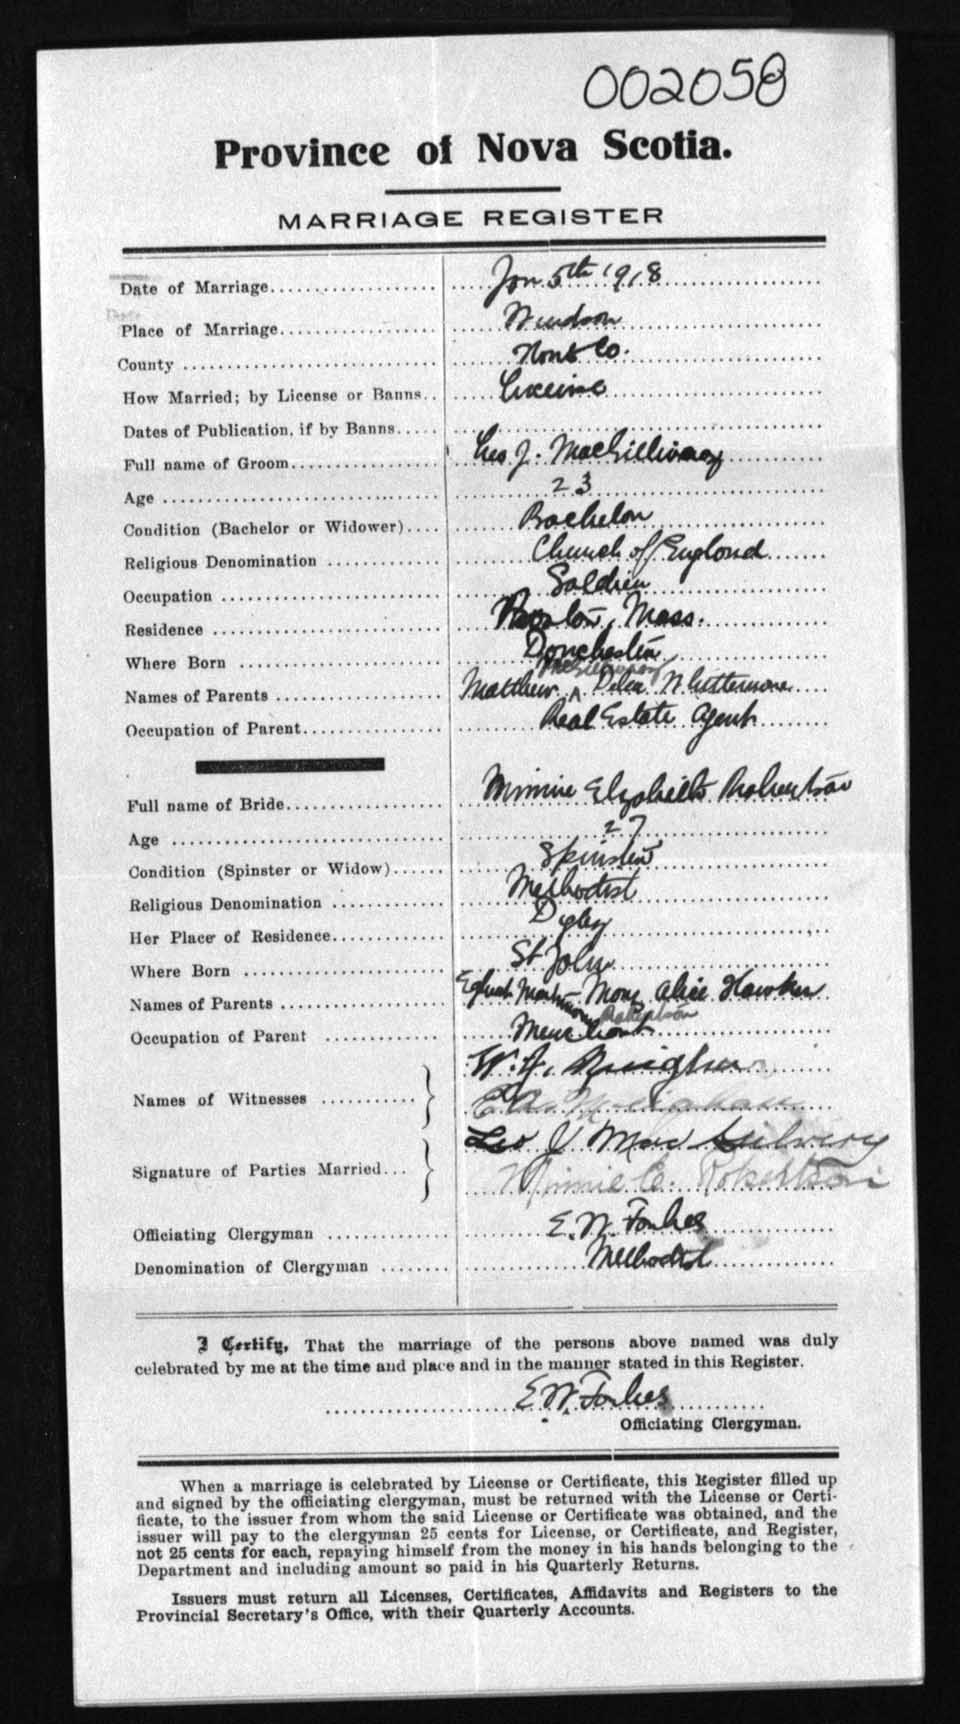 002058
Province of Nova Scotia.
MARRIAGE REGISTER
Date of Marriage Jan 5th 1918
Place of Marriage Windsor
County Hants Co.
How Married; by License or Banns License
Dates of Publication, if by Banns
Full name of Groom Leo J. MacGillivray
Age 23
Condition (Bachelor or Widower) Bachelor
Religious Denomination Church of England
Occupation Soldier
Residence Boston, Mass.
Where Born Dorchester
McGillivray
Names of Parents Matthew ^ Delia Whittemore
Occupation of Parent Real Estate Agent
Full name of Bride Minnie Elizabeth Robertson
Age 27
Condition (Spinster or Widow) Spinster
Religious Denomination Methodist
Her Place of Residence Digby
Where Born St John
Names of Parents Mary Alice Hawker
Robertson
Occupation of Parent Merchant
Names of Witnesses W. A.
E. A.
Signature of Parties Married Leo J Mac
Minnie E. Robertson
Officiating Clergyman E. W. Forbes
Denomination of Clergyman Methodist
I Certify, That the marriage of the persons above named was duly
celebrated by me at the time and place and in the manner stated in this Register.
E W. Forbes
Officiating Clergyman.
When a marriage is celebrated by License or Certificate, this Register filled up
and signed by the officiating clergyman, must be returned with the License or Certi-
ficate, to the issuer from whom the said License or Certificate was obtained, and the
issuer will pay to the clergyman 25 cents for License, or Certificate, and Register,
not 25 cents for each, repaying himself from the money in his hands belonging to the
Department and including amount so paid in his Quarterly Returns.
Issuers must return all Licenses, Certificates, Affidavits and Registers to the
Provincial Secretary's Office, with their Quarterly Accounts.